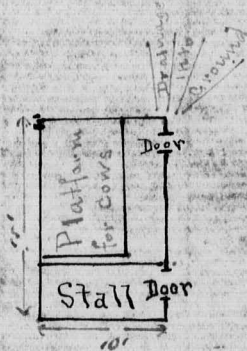 Drainage
into
Ground
Door
Platform
for Cows
Stall Door
10'